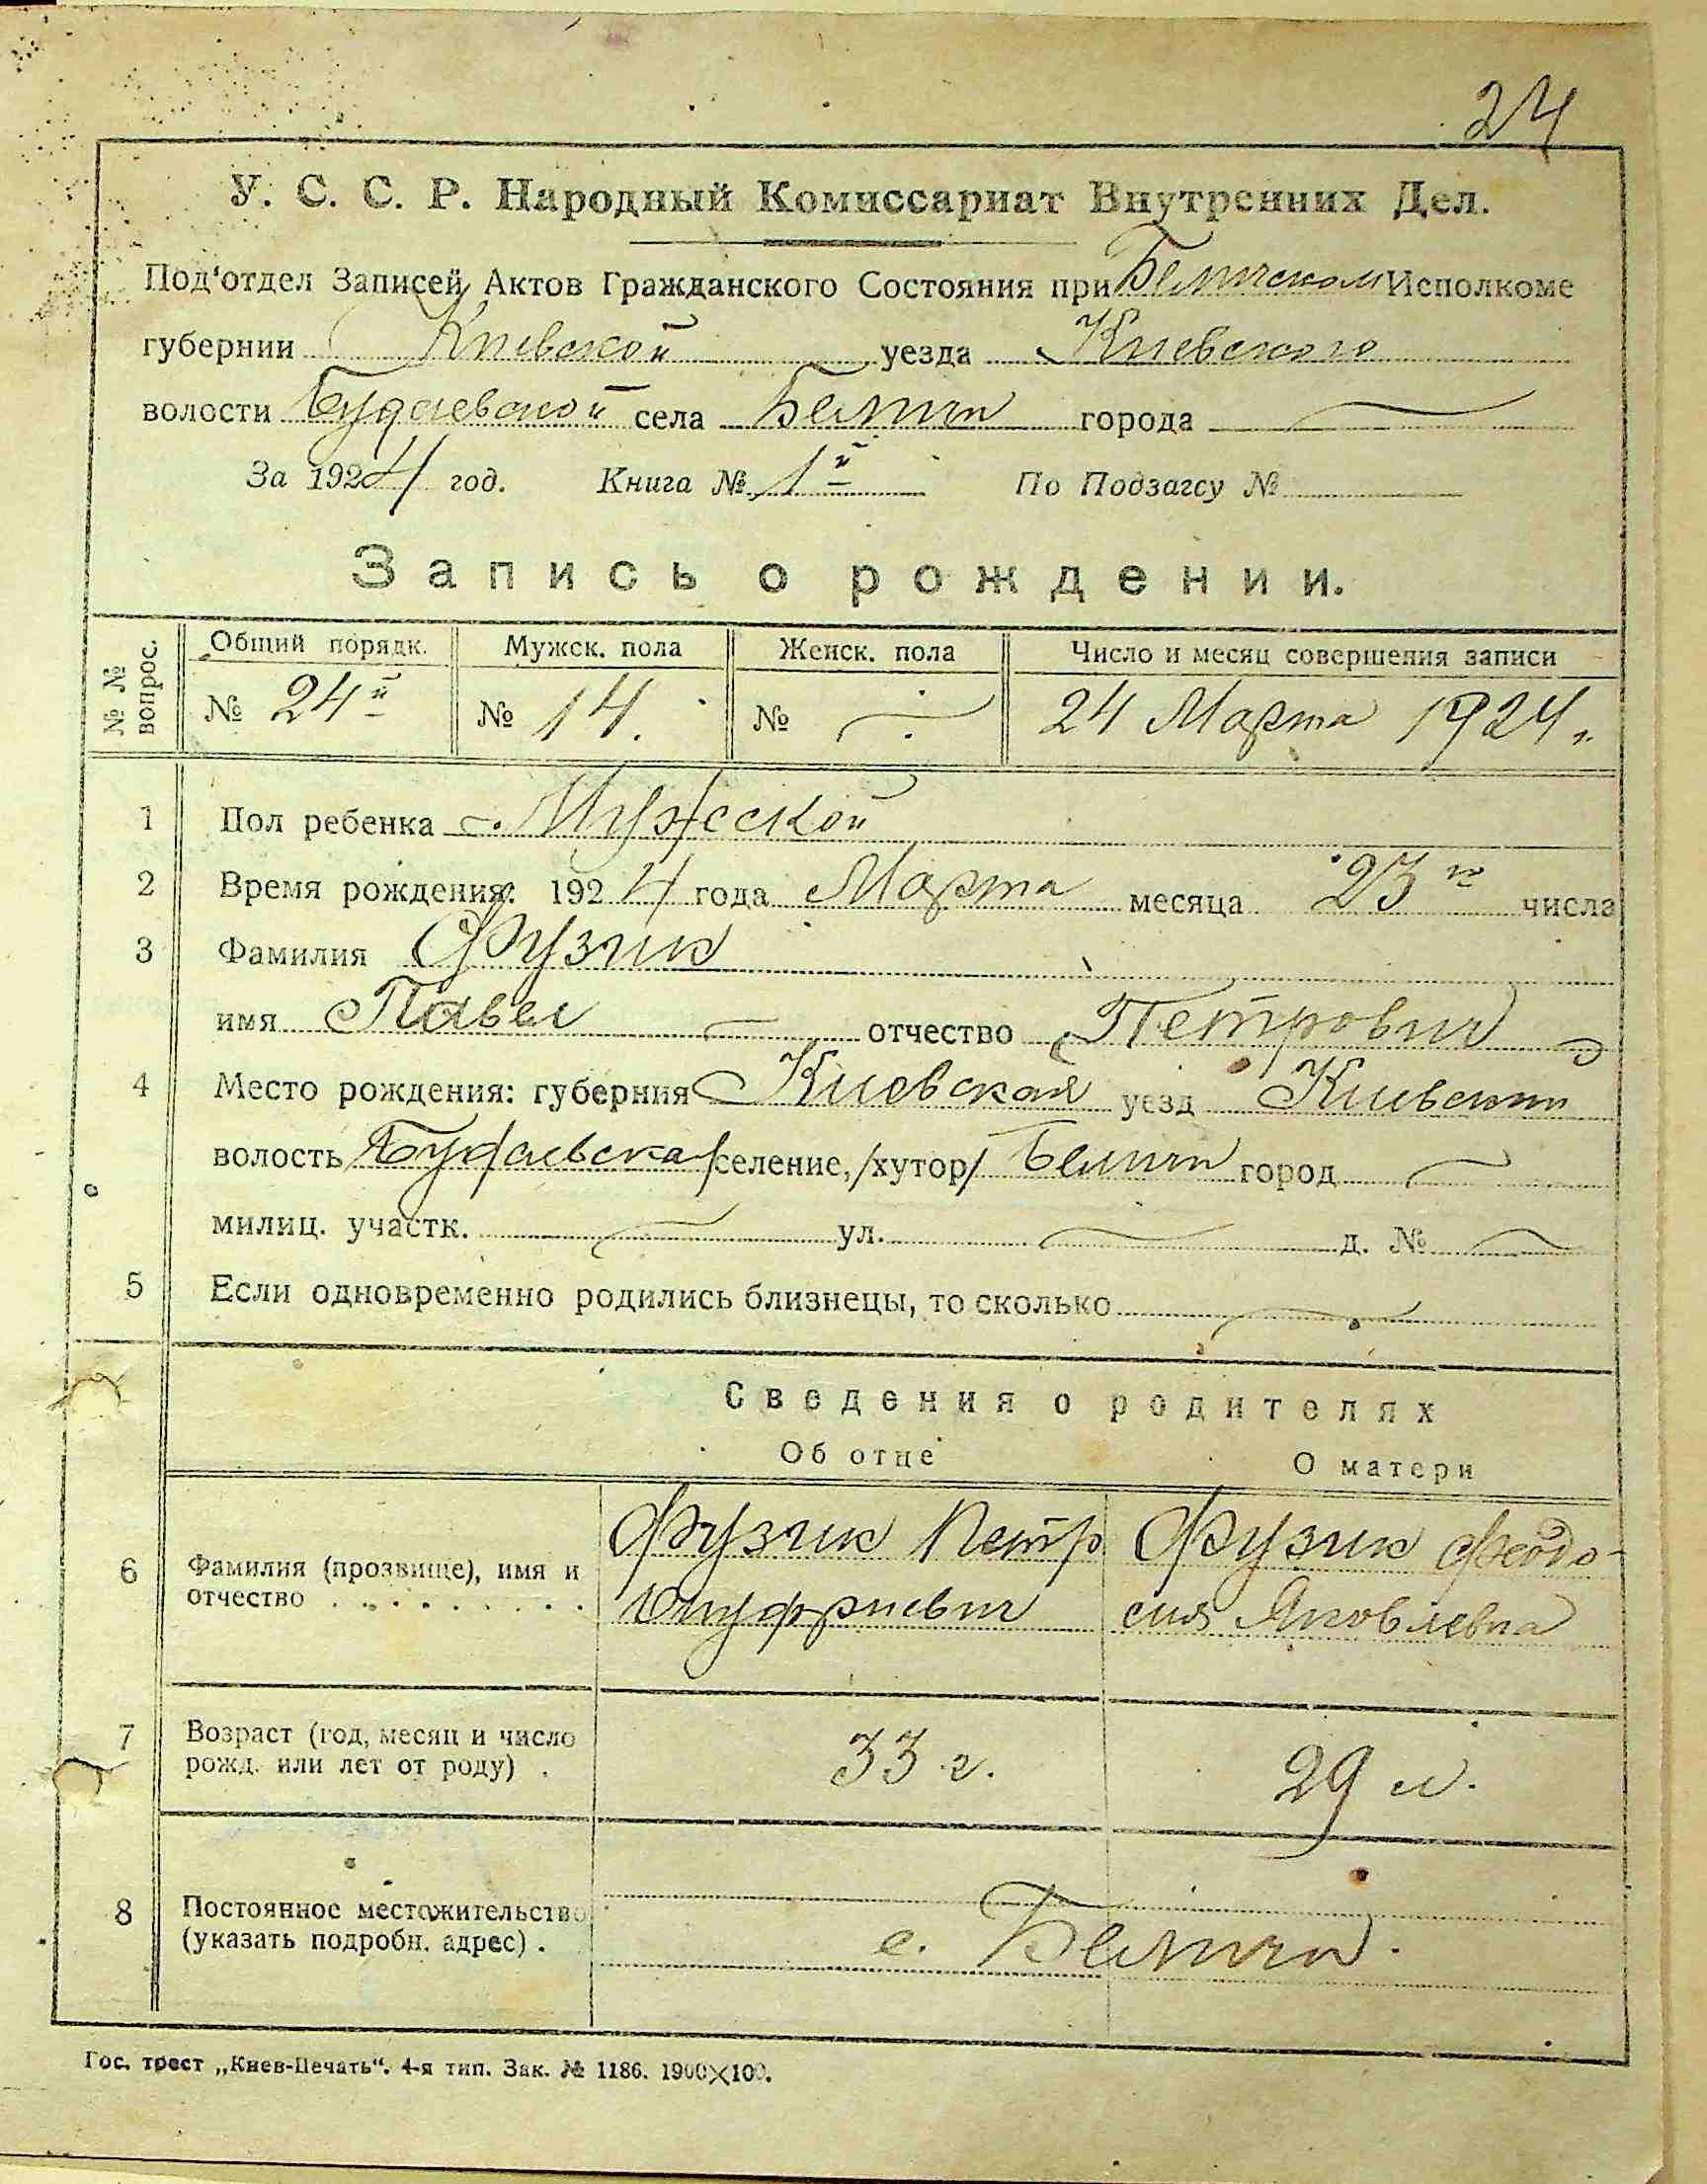 24
У. С. С. Р. Народный Комиссариат Внутренних Дел.
Под'отдел Записей Актов Гражданского Состояния при Беличском Исполкоме
губернии Киевской уезда Киевского
волости Будаевской села Беличи города —
За 1924 год. Книга № 1й По Подзагсу №
Запись о рождении.
№ № вопрос. Общий порядк. Мужск. пола Женск. пола Число и месяц совершения записи
№ 24й № 14. № — 24 Марта 1924 г.
1 Пол ребенка Мужеской
2 Время рождения: 1924 года Марта месяца 23го числа
3 Фамилия Фузик
имя Павел отчество Петрович
4 Место рождения: губерния Киевская уезд Киевский
волость Будаевская селение, /хутор/ Беличи город —
милиц. участк. — ул. — д. № —
5 Если одновременно родились близнецы, то сколько —
Сведения о родителях
Об отце О матери
6 Фамилия (прозвище), имя и отчество . . . . . . . . .
Фузик Петр Онуфриевич
Фузик Феодосия Яковлевна
7 Возраст (год, месяц и число рожд. или лет от роду) .
33 г. 29 л.
8 Постоянное местожительство (указать подробн. адрес) .
с. Беличи.
Гос. трест „Киев-Печать“. 4-я тип. Зак. № 1186. 1900×100.